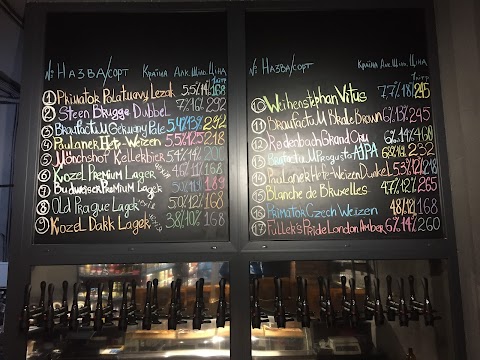 № НАЗВА/СОРТ Країна Алк. Щіл. Ціна
1 літр
1 Primator Polotmavy Lezak 5.5% 14% 168
2 Steen Brugge Dubbel 7% 16% 292
3 Braufactum 5.4% 13% 242
4 Paulaner Hefe-Weizen 5.5% 12.5% 218
5 Mönchshof Kellerbier 5.4% 200
6 Kozel Premium Lager 4.6% 11% 168
7 Budweiser Premium Lager 189
8 Old Prague Lager 5.0% 12% 168
9 Kozel Dark Lager 3.8% 10% 168
№ НАЗВА/СОРТ Країна Алк. Щіл. Ціна
1 літр
10 Weihenstephan Vitus 7.7% 18% 245
11 Braufactum Ale Brown 245
12 Rodenbach Grand Cru 6% 14% 468
13 Braufactum Progusta IPA 6.8% 232
14 Paulaner Hefe-Weizen Dunkel 5.3% 218
15 Blanche de Bruxelles 4.7% 12% 265
16 Primator Czech Weizen 4.8% 168
17 Fuller's Pride London Amber 6% 14% 260